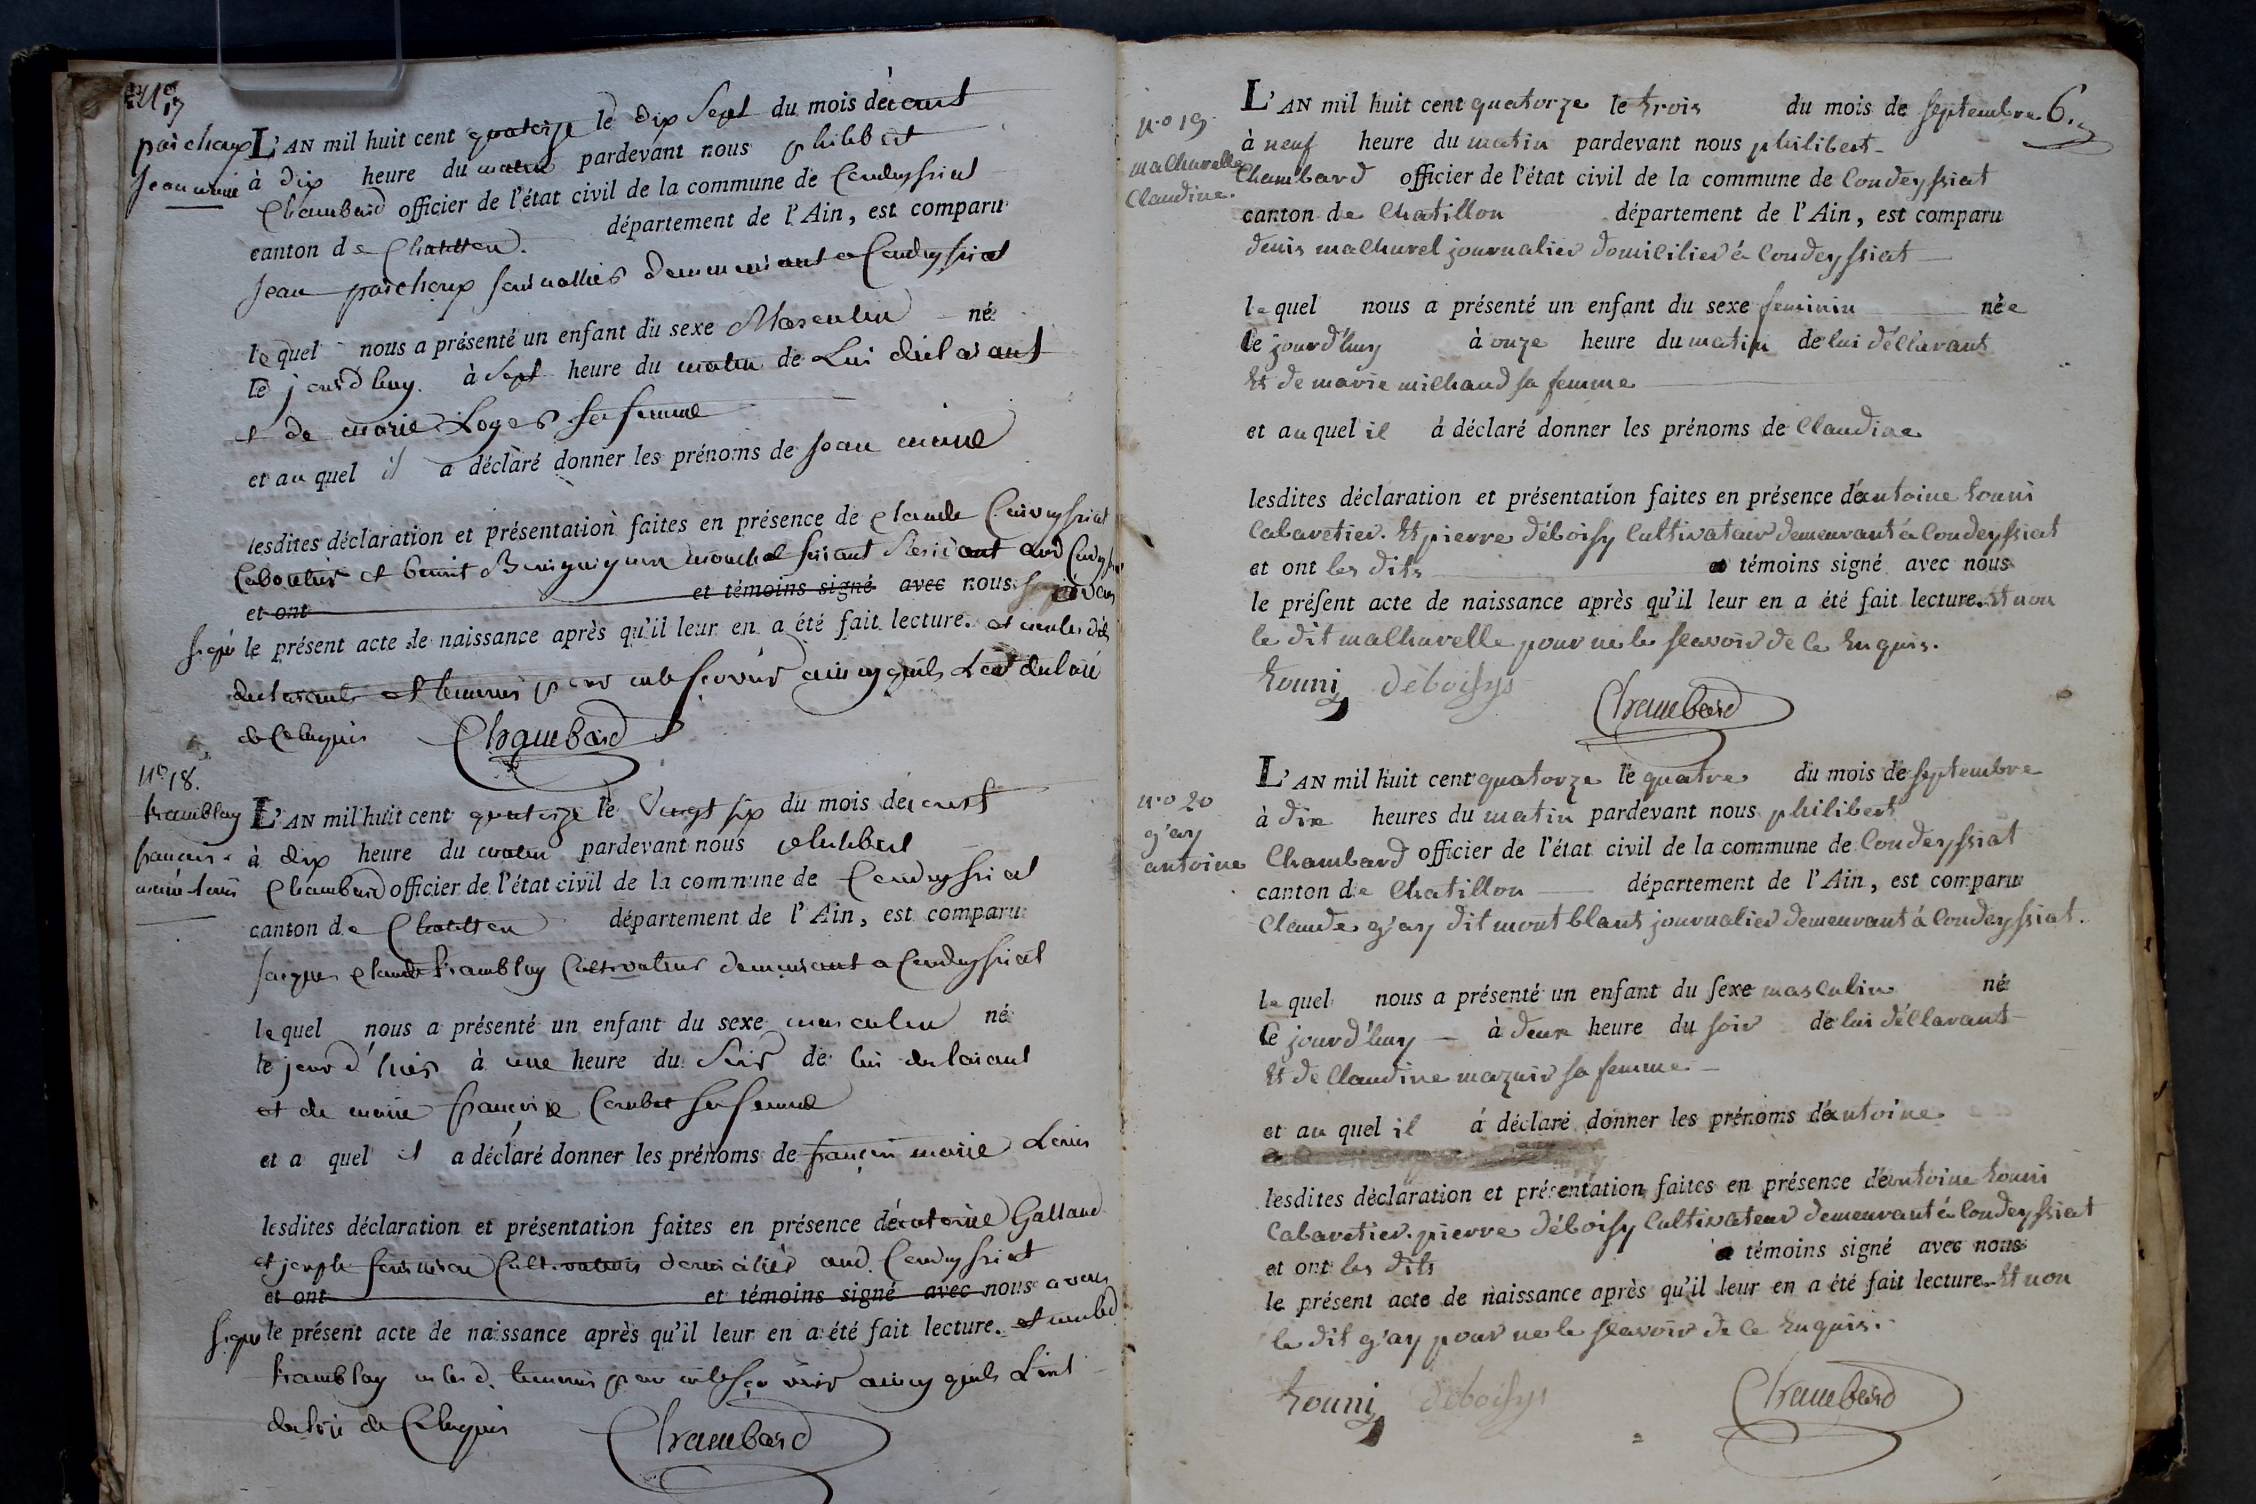 No 17
paicheux
Jean marie
L'AN mil huit cent quatorze le dix Sept du mois d'é aoust
à dix heure du matin pardevant nous philibert
Chambard officier de l'état civil de la commune de Condeyssiat
canton de Chatillon département de l'Ain, est comparu
Jean paicheux demeurant a Condeyssiat
lequel nous a présenté un enfant du sexe Masculin né
le jourd'huy à Sept heure du matin de Lui déclarant
et de marie Loges sa femme
et au quel il a déclaré donner les prénoms de Jean marie
lesdites déclaration et présentation faites en présence de claude
et benoit
et ont et témoins signé avec nous
signé le présent acte de naissance après qu'il leur en a été fait lecture. et
declarant et temoins pour ainsy quils Lont declaré
de Ce Enquis Chambard
No 18.
tramblay
françois
marie Louis
L'AN mil huit cent quatorze le Vingt six du mois dé aoust
à dix heure du matin pardevant nous philibert
Chambard officier de l'état civil de la commune de Condeyssiat
canton de Chatillon département de l'Ain, est comparu
Jacques claude tramblay Cultivateur demeurant a Condeyssiat
lequel nous a présenté un enfant du sexe masculin né
le jour d'huis à une heure du Soir de lui declarant
et de marie françoise Combet sa femme
et a quel il a déclaré donner les prénoms de françois marie Louis
lesdites déclaration et présentation faites en présence dé antoine Galland
et joseph Cultivateurs domiciliés aud. Condeyssiat
et ont et témoins signé avec nous avons
signé le présent acte de naissance après qu'il leur en a été fait lecture. et
tramblay temoins pour ainsy quils Lont
declaré de Ce Enquis Chambard
6.
no 19.
malhuvelle
Claudine.
L'AN mil huit cent quatorze le trois du mois de septembre
à neuf heure du matin pardevant nous philibert
Chambard officier de l'état civil de la commune de Condeyssiat
canton de Chatillon département de l'Ain, est comparu
denis malhuvel journalier domicilier à Condeyssiat
lequel nous a présenté un enfant du sexe feminin née
le jourd'huy à onze heure du matin de lui déclarant
Et de marie michaud sa femme
et au quel il á déclaré donner les prénoms de Claudine
lesdites déclaration et présentation faites en présence d'antoine touni
Cabaretier. Et pierre déboisy Cultivateur demeurant à Condeyssiat
et ont les dits témoins signé avec nous
le présent acte de naissance après qu'il leur en a été fait lecture. Et non
le dit malhuvelle pour ne le scavoir de ce Enquis.
touni déboisys Chambard
no 20
g'ay
antoine
L'AN mil huit cent quatorze le quatre du mois de septembre
à dix heures du matin pardevant nous philibert
Chambard officier de l'état civil de la commune de Condeyssiat
canton de Chatillon département de l'Ain, est comparu
Claude g'ay dit mont blant journalier demeurant à Condeyssiat.
lequel nous a présenté un enfant du sexe masculin né
le jourd'huy à deux heure du soir de lui déclarant
Et de Claudine mazuir sa femme
et au quel il á déclaré donner les prénoms d'antoine
lesdites déclaration et présentation faites en présence d'antoine touni
Cabaretier. pierre déboisy Cultivateur demeurant à Condeyssiat
et ont les dits témoins signé avec nous
le présent acte de naissance après qu'il leur en a été fait lecture. Et non
le dit g'ay pour ne le scavoir de ce Enquis.
touni déboisys Chambard